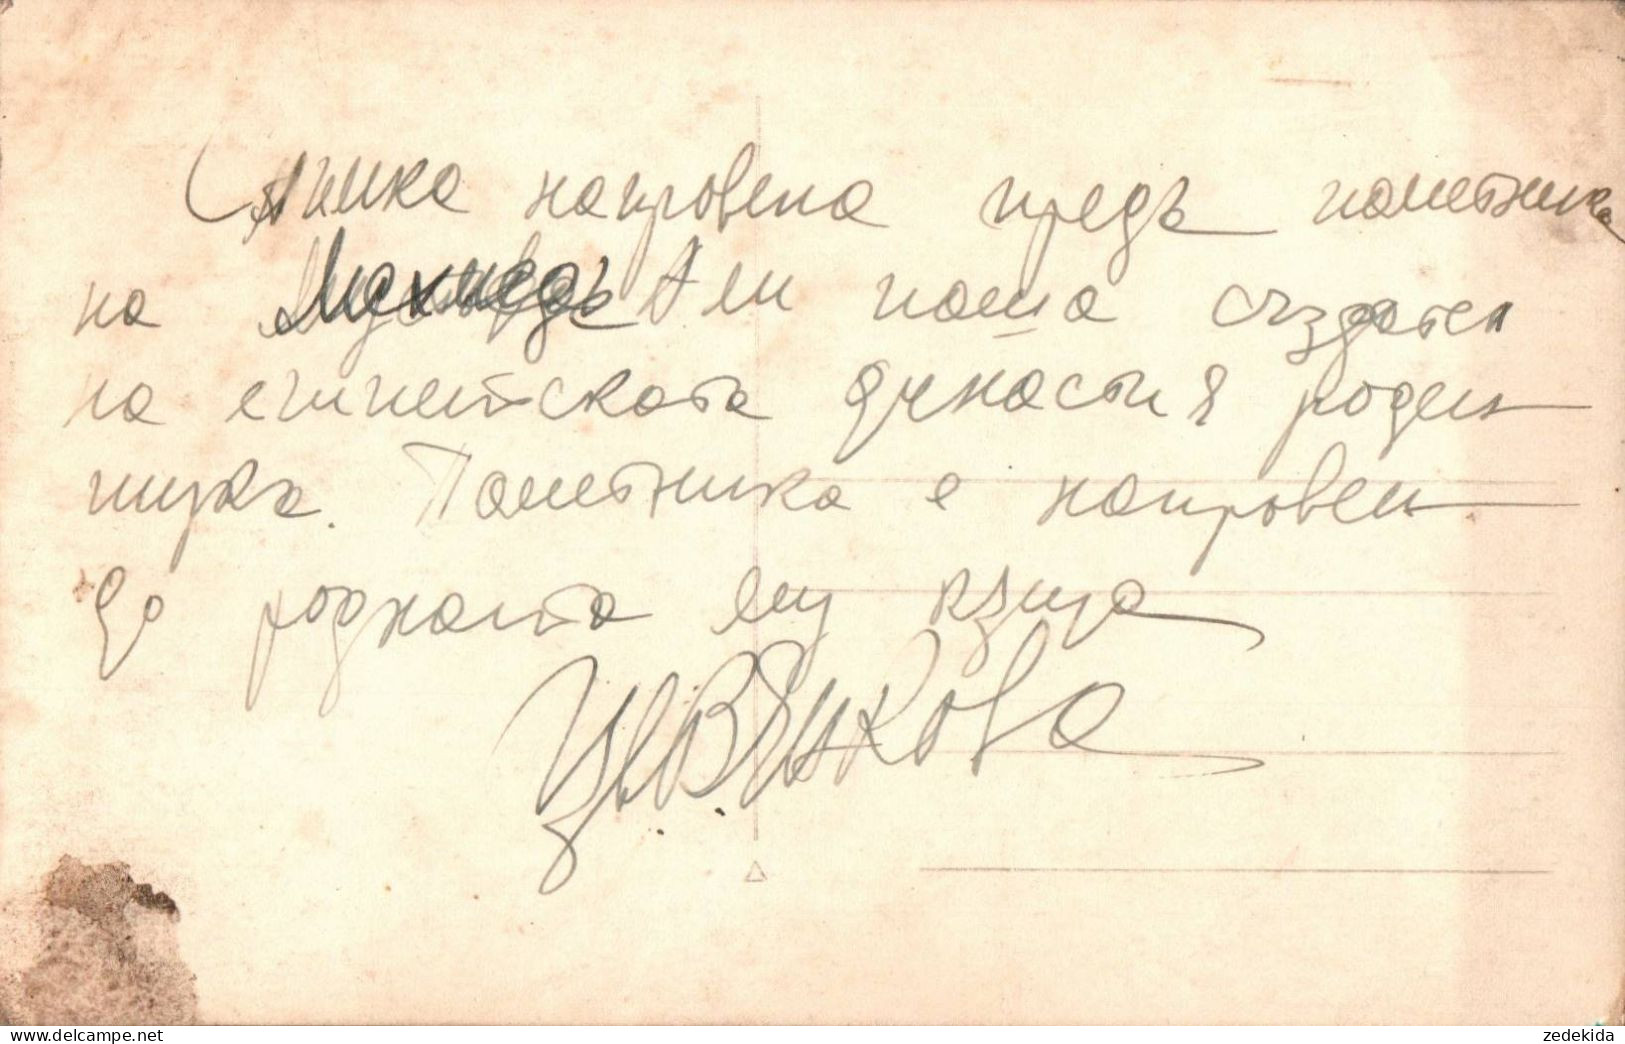 Снимка направена предъ паметника
на Мехмедъ Али паша създател
на египетската династия роден
тука. Паметника е направен
до родната му къща
Цв. Янкова
zedekida